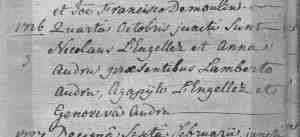 et Joe Francisco Demoulin
1776 Quarta Octobris juncti Sunt
Nicolaus L'Engellez et Anna
3 Audru præsentibus Lamberto
Audru, Agapyto L'Engellez et
Genoveva Audru
Septa februarii